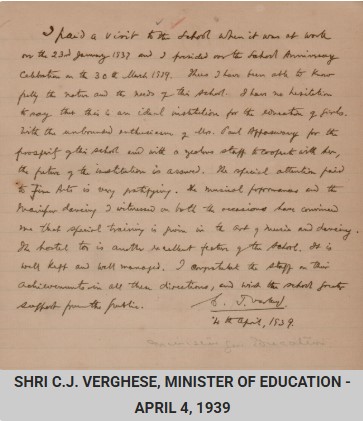 I paid a visit to the School when it was at work
on the 23rd January 1939 and I presided over the School Anniversary
Celebration on the 30th March 1939. Thus I have been able to know
fully the nature and the needs of this School. I have no hesitation
to say that this is an ideal institution for the education of girls.
With the unbounded enthusiasm of Mrs. Paul Appasamy for the
prosperity of the school and with a zealous staff to cooperate with her,
the future of the institution is assured. The special attention paid
to Fine Arts is very gratifying. The musical performances and the
dancing I witnessed on both the occasions have convinced
me that special training is given in the art of music and dancing.
The hostel too is another excellent feature of the School. It is
well kept and well managed. I congratulate the staff on their
achievements in all these directions, and wish the school further
support from the public.
C. J.
4th April, 1939.
SHRI C.J. VERGHESE, MINISTER OF EDUCATION -
APRIL 4, 1939